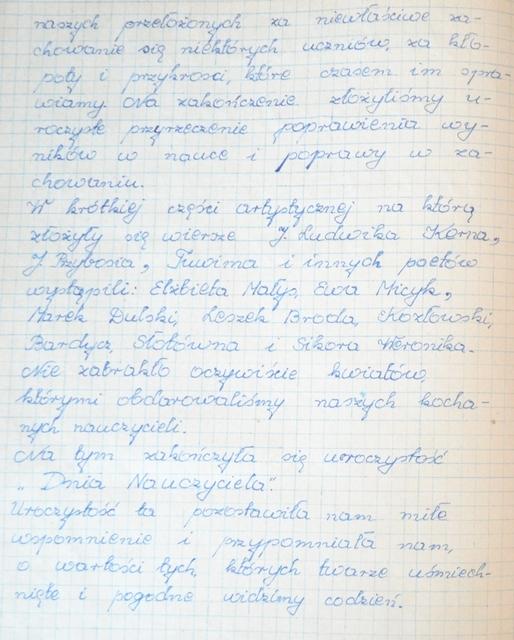 naszych przełożonych za niewłaściwe za-
chowanie się niektórych uczniów, za kło-
poty i przykrości, które czasem im spra-
wiamy. Na zakończenie złożyliśmy u-
roczyste przyrzeczenie poprawienia wy-
ników w nauce i poprawy w za-
chowaniu.
W krótkiej części artystycznej na którą
złożyły się wiersze J. Ludwika Kerna,
J. Przybosia, Tuwima i innych poetów
wystąpili: Elżbieta Małys, Ewa Micyk,
Marek Dulski, Leszek Broda, Chozłowski,
Bardycz, Słotówna i Sikora Weronika.
Nie zabrakło oczywiście kwiatów,
którymi obdarowaliśmy naszych kocha-
nych nauczycieli.
Na tym zakończyła się uroczystość
„Dnia Nauczyciela".
Uroczystość ta pozostawiła nam miłe
wspomnienie i przypomniała nam,
o wartości tych, których twarze uśmiech-
nięte i pogodne widzimy codzień.